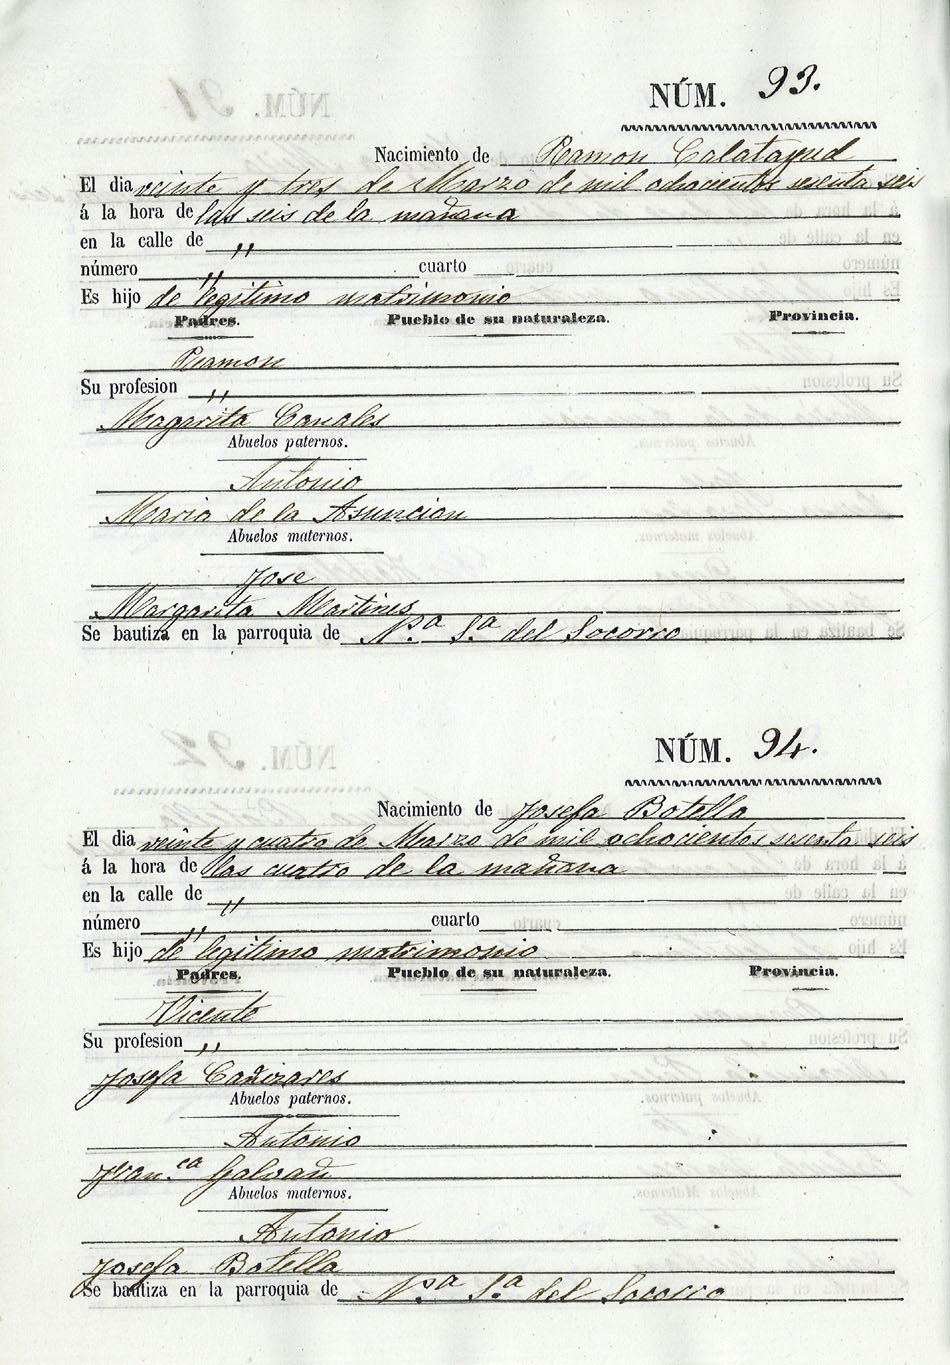 NÚM. 93.
Nacimiento de Ramon Calatayud
El dia veinte y tres de Marzo de mil ochocientos sesenta seis
á la hora de las seis de la mañana
en la calle de "
número " cuarto
Es hijo de legitimo matrimonio
Padres. Pueblo de su naturaleza. Provincia.
Ramon
Su profesion "
Magarita Canales
Abuelos paternos.
Antonio
Maria de la Asuncion
Abuelos maternos.
Jose
Margarita Martines
Se bautiza en la parroquia de N.ª S.ª del Socorro
NÚM. 94.
Nacimiento de Josefa Botella
El dia veinte y cuatro de Marzo de mil ochocientos sesenta seis
á la hora de las cuatro de la mañana
en la calle de "
número " cuarto
Es hijo de legitimo matrimonio
Padres. Pueblo de su naturaleza. Provincia.
Vicente
Su profesion "
Josefa Cañizares
Abuelos paternos.
Antonio
Fran.ca Galvañ
Abuelos maternos.
Antonio
Josefa Botella
Se bautiza en la parroquia de N.ª S.ª del Socorro